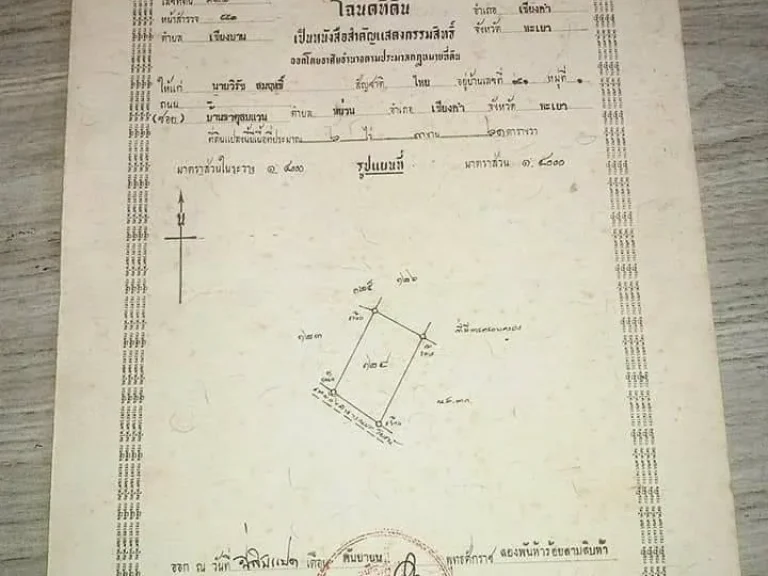 โฉนดที่ดิน
หน้าสำรวจ ๔๘๑
อำเภอ เชียงคำ
ตำบล เชียงบาน
เป็นหนังสือสำคัญแสดงกรรมสิทธิ์
จังหวัด พะเยา
ออกโดยอาศัยอำนาจตามประมวลกฎหมายที่ดิน
ให้แก่ นายวิรัช สมฤทธิ์ สัญชาติ ไทย อยู่บ้านเลขที่ ๑๔๑ หมู่ที่ ๑
ถนน
(ซอย) บ้านธาตุสบแวน ตำบล หย่วน อำเภอ เชียงคำ จังหวัด พะเยา
ที่ดินแปลงนี้มีเนื้อที่ประมาณ ๒ ไร่ ๓ งาน ๒๑ ตารางวา
มาตราส่วนในระวาง ๑: ๔๐๐๐ รูปแผนที่ มาตราส่วน ๑: ๔๐๐๐
น
๑๒๕ ๑๒๖
๑๒๓
๑๒๔
ออก ณ วันที่ ยี่สิบแปด เดือน กันยายน พุทธศักราช สองพันห้าร้อยสามสิบห้า